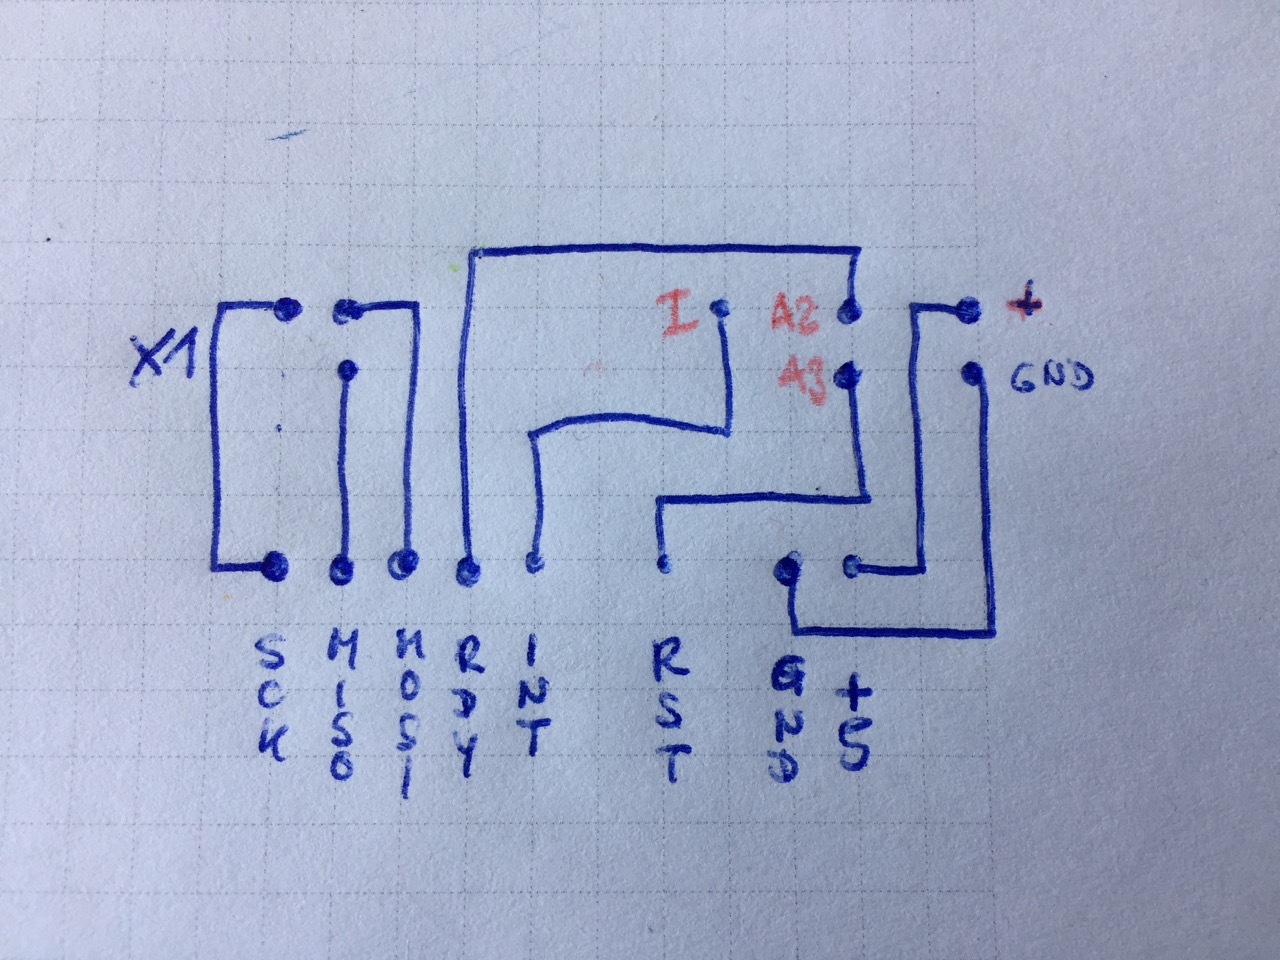 I A2 +
X1 A3 GND
SCK MISO MOSI RDY INT RST GND +5